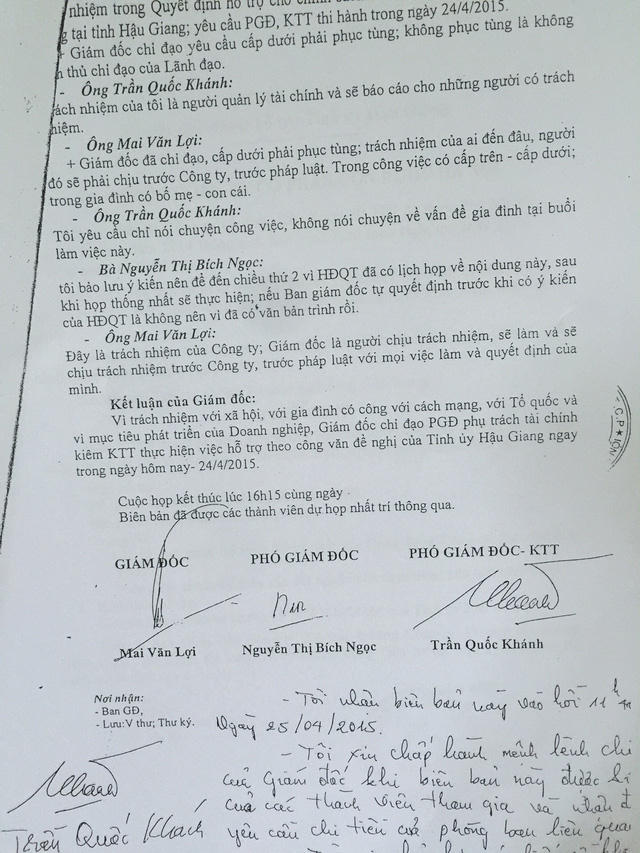 nhiệm trong Quyết định hỗ trợ cho
tại tỉnh Hậu Giang; yêu cầu PGĐ, KTT thi hành trong ngày 24/4/2015.
+ Giám đốc chỉ đạo yêu cầu cấp dưới phải phục tùng; không phục tùng là không
thủ chỉ đạo của Lãnh đạo.
- Ông Trần Quốc Khánh:
trách nhiệm của tôi là người quản lý tài chính và sẽ báo cáo cho những người có trách
nhiệm.
- Ông Mai Văn Lợi:
+ Giám đốc đã chỉ đạo, cấp dưới phải phục tùng; trách nhiệm của ai đến đâu, người
đó sẽ phải chịu trước Công ty, trước pháp luật. Trong công việc có cấp trên - cấp dưới;
trong gia đình có bố mẹ - con cái.
- Ông Trần Quốc Khánh:
Tôi yêu cầu chỉ nói chuyện công việc, không nói chuyện về vấn đề gia đình tại buổi
làm việc này.
- Bà Nguyễn Thị Bích Ngọc:
tôi bảo lưu ý kiến nên để đến chiều thứ 2 vì HĐQT đã có lịch họp về nội dung này, sau
khi họp thống nhất sẽ thực hiện; nếu Ban giám đốc tự quyết định trước khi có ý kiến
của HĐQT là không nên vì đã có văn bản trình rồi.
- Ông Mai Văn Lợi:
Đây là trách nhiệm của Công ty; Giám đốc là người chịu trách nhiệm, sẽ làm và sẽ
chịu trách nhiệm trước Công ty, trước pháp luật với mọi việc làm và quyết định của
mình.
Kết luận của Giám đốc:
Vì trách nhiệm với xã hội, với gia đình có công với cách mạng, với Tổ quốc và
vì mục tiêu phát triển của Doanh nghiệp, Giám đốc chỉ đạo PGĐ phụ trách tài chính
kiêm KTT thực hiện việc hỗ trợ theo công văn đề nghị của Tỉnh ủy Hậu Giang ngay
trong ngày hôm nay- 24/4/2015.
Cuộc họp kết thúc lúc 16h15 cùng ngày
Biên bản đã được các thành viên dự họp nhất trí thông qua.
GIÁM ĐỐC PHÓ GIÁM ĐỐC PHÓ GIÁM ĐỐC- KTT
Mai Văn Lợi Nguyễn Thị Bích Ngọc Trần Quốc Khánh
Nơi nhận:
- Ban GĐ,
- Lưu:V thư; Thư ký.
- Tôi nhận biên bản này vào hồi 11h
Ngày 25/04/2015.
- Tôi xin chấp hành mệnh lệnh chỉ
của Giám đốc khi biên bản này được kí
của các thành viên tham gia và nhận đ
yêu cầu chi tiền của phòng ban liên quan
Trần Quốc Khánh
C.P